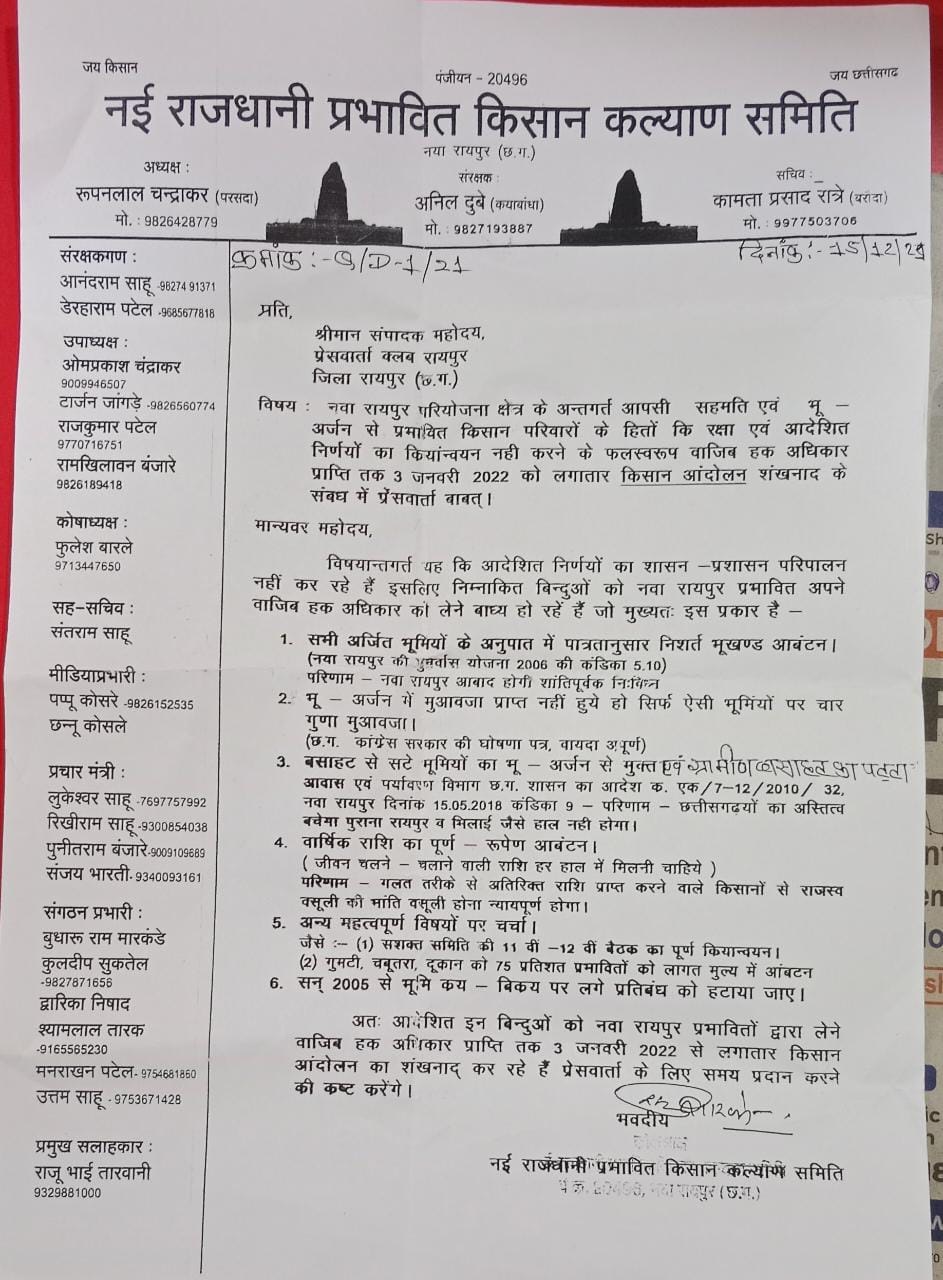 जय किसान
पंजीयन - 20496
जय छत्तीसगढ
नई राजधानी प्रभावित किसान कल्याण समिति
नया रायपुर (छ.ग.)
अध्यक्ष :
रूपनलाल चन्द्राकर (परसदा)
मो. : 9826428779
संरक्षक:
अनिल दुबे (कयाबांधा)
मो. : 9827193887
सचिव:
कामता प्रसाद रात्रे (बरौदा)
मो. : 9977503706
संरक्षकगण :
आनंदराम साहू -98274 91371
डेरहाराम पटेल -9685677818
उपाध्यक्ष :
ओमप्रकाश चंद्राकर
9009946507
टार्जन जांगड़े -9826560774
राजकुमार पटेल
9770716751
रामखिलावन बंजारे
9826189418
कोषाध्यक्ष :
फुलेश बारले
9713447650
सह-सचिव :
संतराम साहू
मीडियाप्रभारी :
पप्पू कोसरे -9826152535
छन्नू कोसले
प्रचार मंत्री :
लुकेश्वर साहू -7697757992
रिखीराम साहू -9300854038
पुनीतराम बंजारे-9009109689
संजय भारती- 9340093161
संगठन प्रभारी :
बुधारू राम मारकंडे
कुलदीप सुकतेल
-9827871656
द्वारिका निषाद
श्यामलाल तारक
-9165565230
मनराखन पटेल- 9754681860
उत्तम साहू - 9753671428
प्रमुख सलाहकार :
राजू भाई तारवानी
9329881000
क्रमांक :- /D-1/21
दिनांक :- 15/12/21
प्रति,
श्रीमान संपादक महोदय,
प्रेसवार्ता क्लब रायपुर
जिला रायपुर (छ.ग.)
विषय : नवा रायपुर परियोजना क्षेत्र के अन्तगर्त आपसी सहमति एवं भू –
अर्जन से प्रभावित किसान परिवारों के हितों कि रक्षा एवं आदेशित
निर्णयों का कियांन्वयन नही करने के फलस्वरूप वाजिब हक अधिकार
प्राप्ति तक 3 जनवरी 2022 को लगातार किसान आंदोलन शंखनाद के
संबध में प्रेंसवार्ता बाबत्।
मान्यवर महोदय,
विषयान्तगर्त यह कि आदेशित निर्णयों का शासन –प्रशासन परिपालन
नहीं कर रहे हैं इसलिए निम्नाकित बिन्दुओं को नवा रायपुर प्रभावित अपने
वाजिब हक अधिकार को लेने बाध्य हो रहें हैं जो मुख्यतः इस प्रकार है –
1. सभी अर्जित भूमियों के अनुपात में पात्रतानुसार निशर्त भूखण्ड आबंटन।
(नया रायपुर की पुनर्वास योजना 2006 की कंडिका 5.10)
परिणाम – नवा रायपुर आबाद होगी शांतिपूर्वक निःविघ्न
2. भू – अर्जन में मुआवजा प्राप्त नहीं हुये हो सिर्फ ऐसी भूमिंयों पर चार
गुणा मुआवजा।
(छ.ग. कांग्रेस सरकार की घोषणा पत्र, वायदा अपूर्ण)
3. बसाहट से सटे भूमियों का भू – अर्जन से मुक्त एवं ग्रामीण बसाहट का पट्टा
आवास एवं पर्यावरण विभाग छ.ग. शासन का आदेश क. एक/7–12/2010/ 32,
नवा रायपुर दिनांक 15.05.2018 कंडिका 9 – परिणाम – छत्तीसगढ़यों का अस्तित्व
बचेगा पुराना रायपुर व भिलाई जैसे हाल नही होगा।
4. वार्षिक राशि का पूर्ण – रूपेण आबंटन।
( जीवन चलने – चलाने वाली राशि हर हाल में मिलनी चाहिये )
परिणाम – गलत तरीके से अतिरिक्त राशि प्राप्त करने वाले किसानों से राजस्व
वसूली की भांति वसूली होना न्यायपूर्ण होगा।
5. अन्य महत्वपूर्ण विषयों पर चर्चा।
जैसे :– (1) सशक्त समिति की 11 वीं –12 वीं बैठक का पूर्ण कियान्वयन।
(2) गुमटी, चबूतरा, दूकान को 75 प्रतिशत प्रभावितों को लागत मुल्य में आंबटन
6. सन् 2005 से भूमि कय – बिकय पर लगे प्रतिबंध को हटाया जाए।
अतः आदेशित इन बिन्दुओं को नवा रायपुर प्रभावितों द्वारा लेने
वाजिब हक अधिकार प्राप्ति तक 3 जनवरी 2022 से लगातार किसान
आंदोलन का शंखनाद् कर रहे हैं प्रेसवार्ता के लिए समय प्रदान करने
की कष्ट करेंगे।
भवदीय
नई राजधानी प्रभावित किसान कल्याण समिति
पं.क. 20496, नवा रायपुर (छ.ग.)